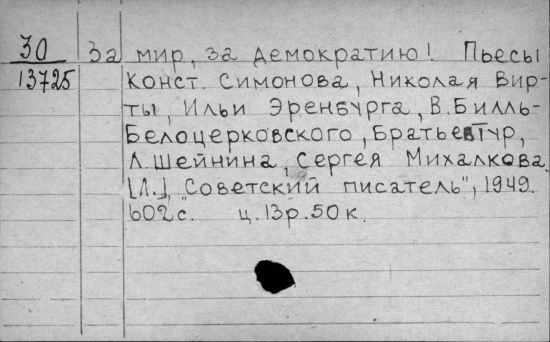 30 За мир, за демократию! Пьесы
13725 Конст. Симонова, Николая Вир-
ты, Ильи Эренбурга, В. Билль-
Белоцерковского, Братьев Тур,
Л. Шейнина, Сергея Михалкова.
[Л.], "Советский писатель", 1949.
602 с. ц. 13р. 50 к.